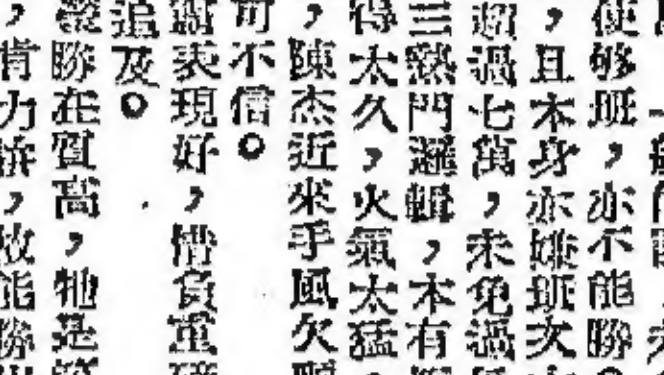 使够班，亦不能勝
，且本身亦嫌班次
超過七萬，未免過
三熱門邏輯，本有
得太久，火氣太猛
，陳杰近來手風欠順
可不信。
表現好，惜負重
追及。
勝在質高，牠是
，肯力拚，故能勝